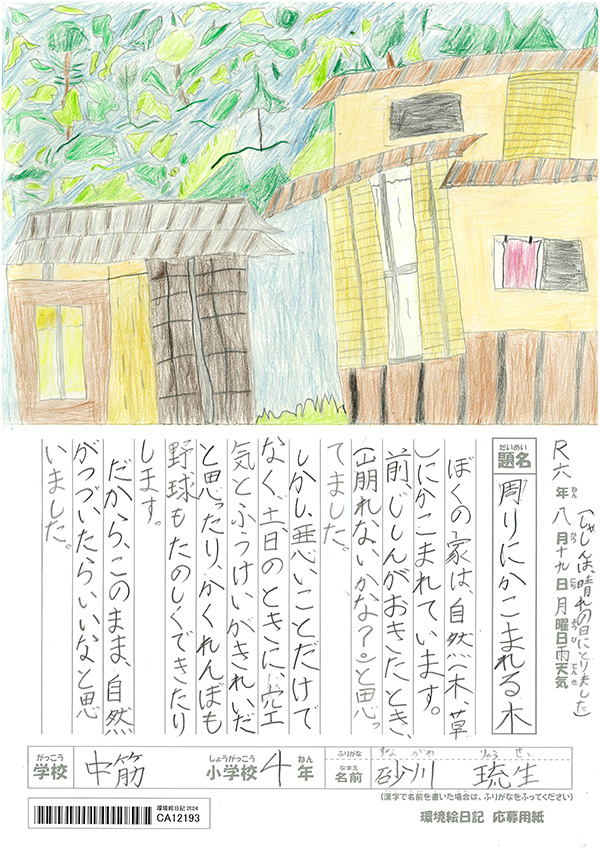 R六年八月十九日月曜日雨天気
（しゃしんは、晴れの日にとりました）
題名 周りにかこまれる木
ぼくの家は、自然（木、草
）にかこまれています。
前、じしんがおきたとき、
（山崩れないかな？）と思っ
てました。
しかし、悪いことだけで
なく、土、日のときに、空
気とふうけいがきれいだ
と思ったり、かくれんぼも
野球もたのしくできたり
します。
だから、このまま、自然
がつづいたらいいなと思
いました。
学校 中筋 小学校 4年
ふりがな すながわ りゅうせい
名前 砂川 琉生
（漢字で名前を書いた場合は、ふりがなをふってください）
環境絵日記 2024
CA12193
環境絵日記 応募用紙